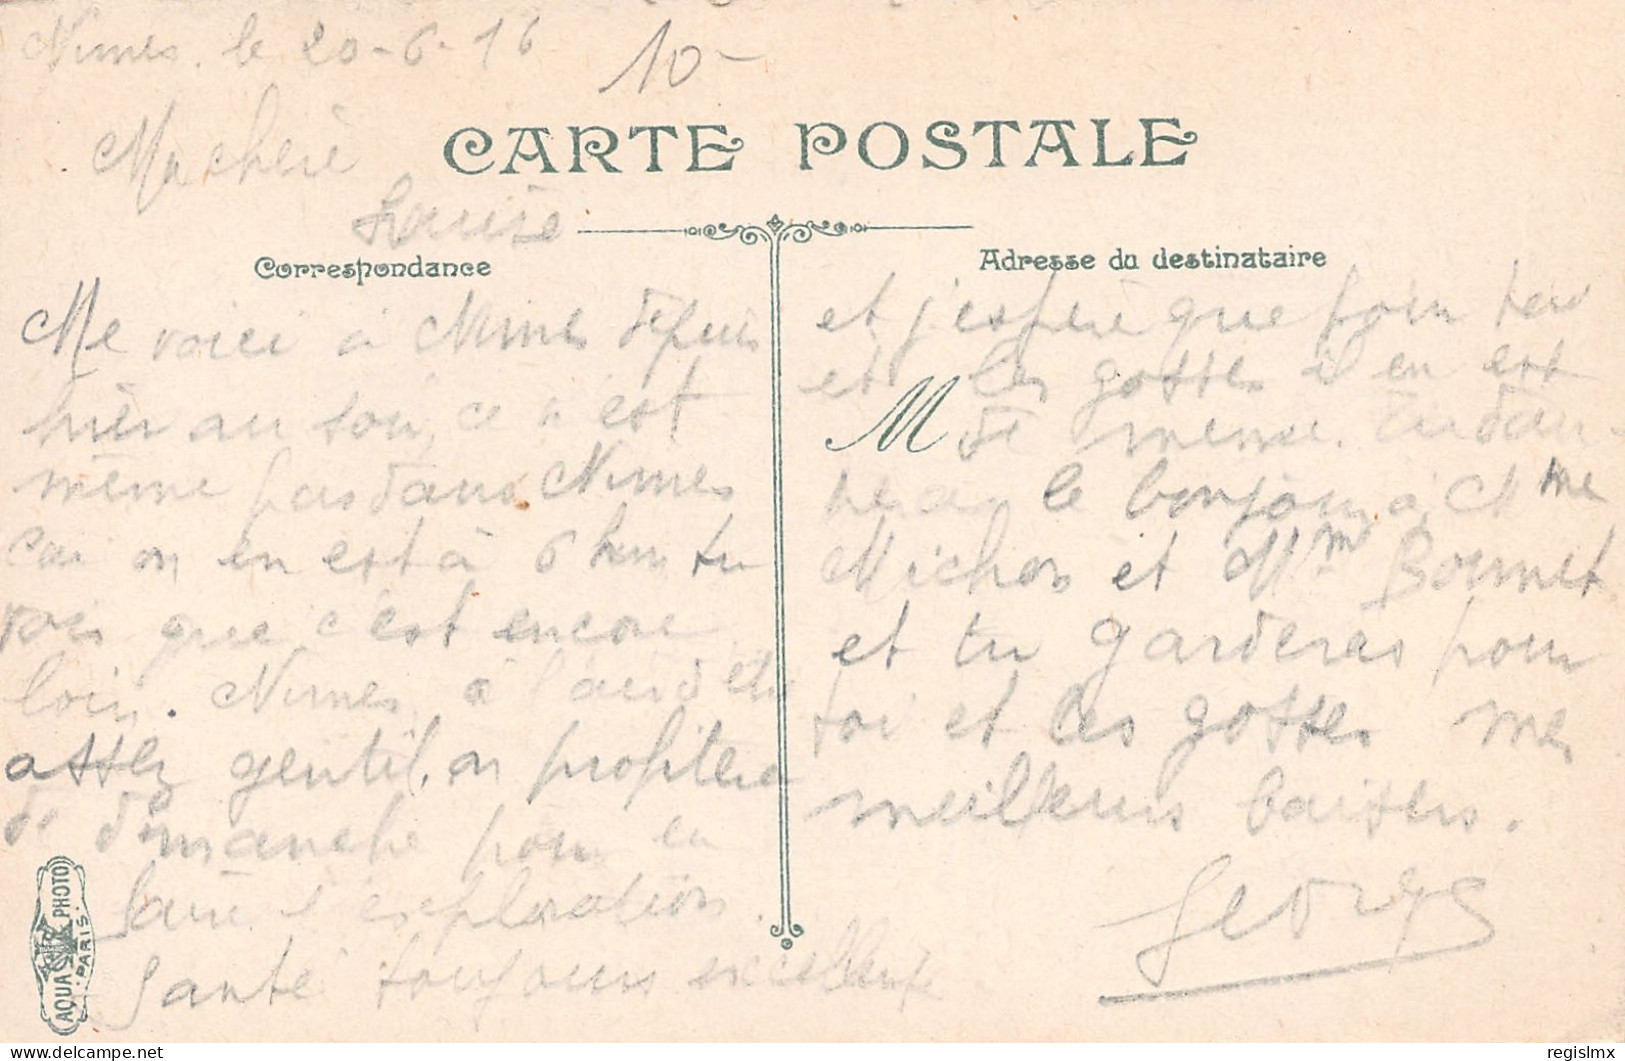 Nimes, le 20-6-16
10-
Ma cherè
Louise
CARTE POSTALE
Correspondance
Adresse du destinataire
Me voici à Nimes depuis
hièr au soir, ce n'est
même pas dans Nimes
car on en est à 6 km tu
vois que c'est encore
loin. Nimes, à l'air d'etre
assez gentil, on profitera
de dimanche pour en
fairè l'exploration.
Santé toujours excellente
et j'esperè que pour toi
et les gosses il en est
M
de meme. Tu don-
neras le bonjour à Mme
Michon et Mme Bonnet
et tu garderas pour
toi et les gosses mes
meilleurs baisers.
Georges
AQUA PHOTO
PARIS
regislmx
delcampe.net